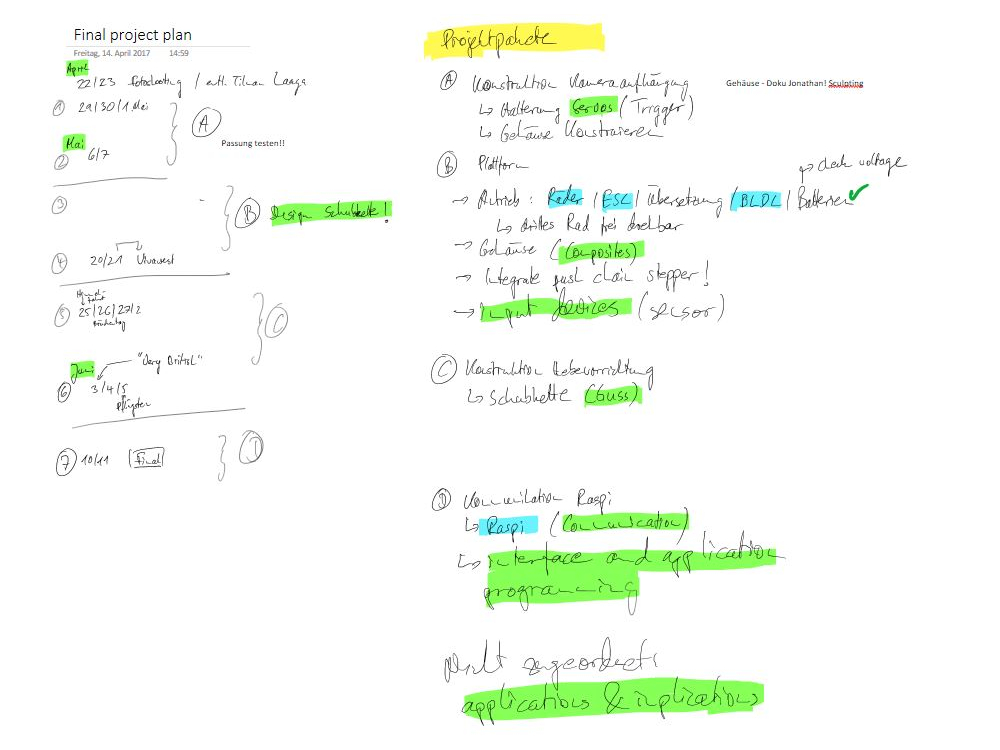 Final project plan
Freitag, 14. April 2017 14:59
April
22/23 Fotoshooting / evtl. Tilman Laage
① 29/30/1 Mai
A
Passung testen!!
Mai
② 6/7
③
B Design Schubkette!
④ 20/21 Vivawest
⑤ 25/26/27/2
Brückentag
C
Juni
"Very British"
⑥ 3/4/5
Pfingsten
⑦ 10/11 Final
D
Projektpakete
A Konstruktion Kameraaufhängung
↳ Halterung Servos (Trigger)
↳ Gehäuse Konstruieren
Gehäuse - Doku Jonathan! Sculpting
B Plattform
check voltage
→ Antrieb: Räder / ESC / Übersetzung / BLDC / Batterien ✓
↳ drittes Rad frei drehbar
→ Gehäuse (Composites)
→ Integrate push chain stepper!
→ Input devices (sensor)
C Konstruktion Hebevorrichtung
↳ Schubkette (Guss)
D Kommunikation Raspi
↳ Raspi (Communication)
↳ interface and application
programming
nicht zugeordnet:
applications & implications